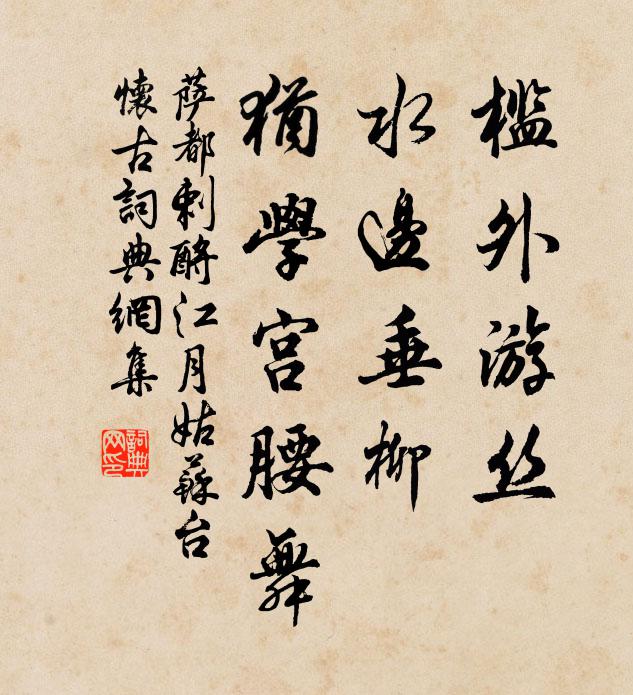 槛外游丝
水邊垂柳
猶學宫腰舞
萨都剌酹江月姑蘇台
懷古詞典網集
詞典网印